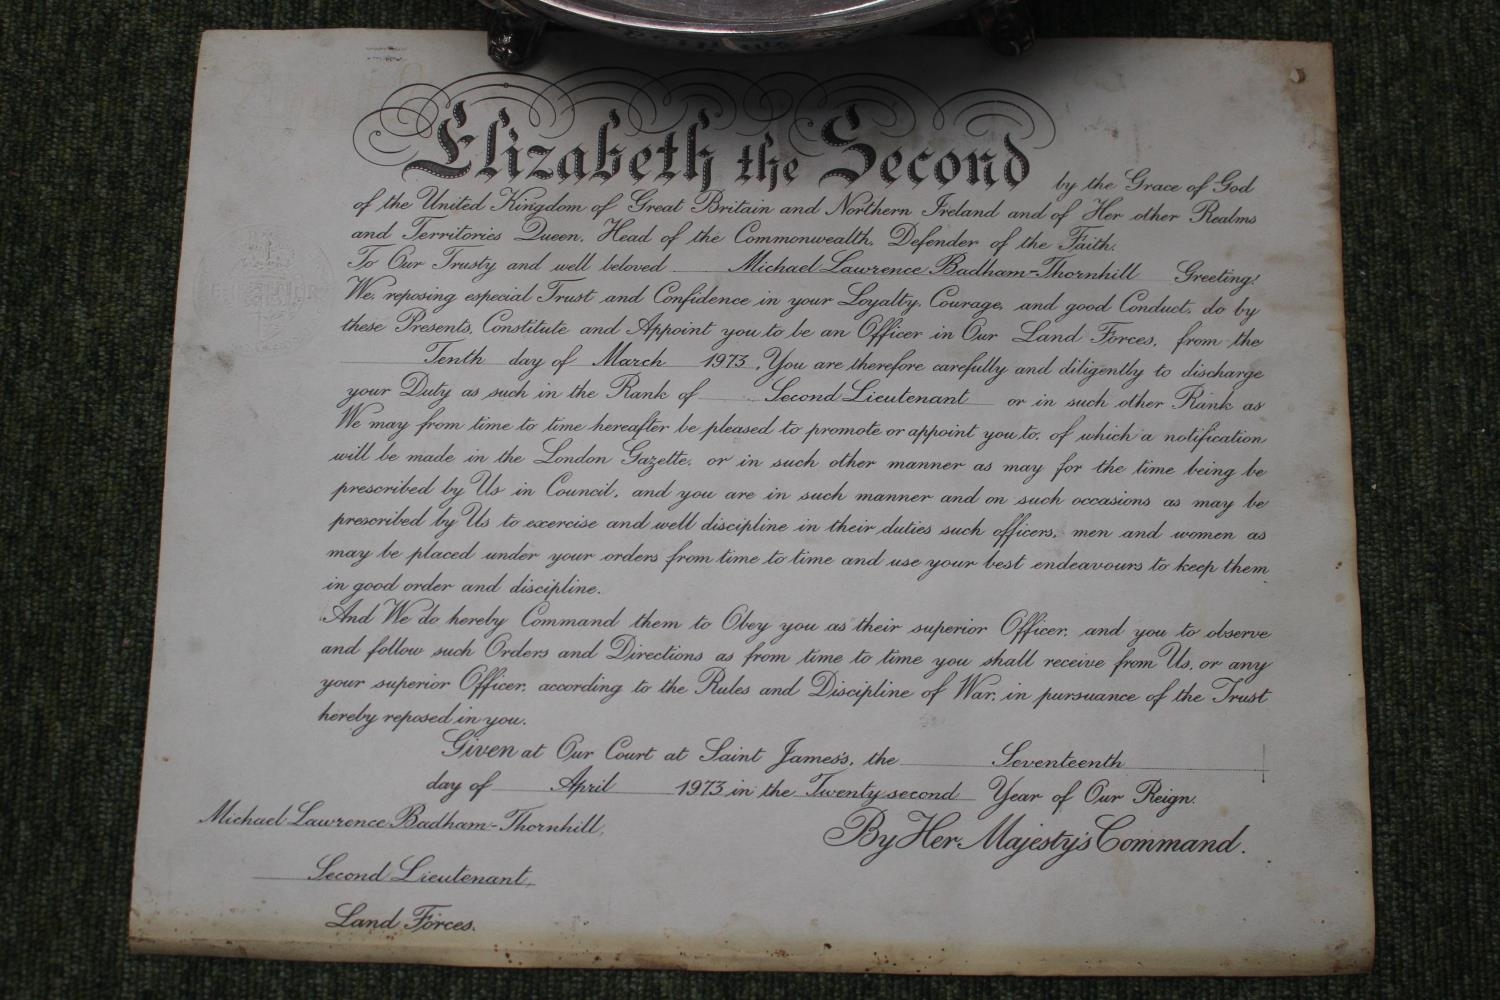 Elizabeth the Second by the Grace of God
of the United Kingdom of Great Britain and Northern Ireland and of Her other Realms
and Territories Queen, Head of the Commonwealth, Defender of the Faith.
To Our Trusty and well beloved Michael Lawrence Badham-Thornhill Greeting!
We, reposing especial Trust and Confidence in your Loyalty, Courage, and good Conduct, do by
these Presents, Constitute and Appoint you to be an Officer in Our Land Forces, from the
Tenth day of March 1973. You are therefore carefully and diligently to discharge
your Duty as such in the Rank of Second Lieutenant or in such other Rank as
We may from time to time hereafter be pleased to promote or appoint you to, of which a notification
will be made in the London Gazette, or in such other manner as may for the time being be
prescribed by Us in Council, and you are in such manner and on such occasions as may be
prescribed by Us to exercise and well discipline in their duties such officers, men and women as
may be placed under your orders from time to time and use your best endeavours to keep them
in good order and discipline.
And We do hereby Command them to Obey you as their superior Officer, and you to observe
and follow such Orders and Directions as from time to time you shall receive from Us, or any
your superior Officer, according to the Rules and Discipline of War, in pursuance of the Trust
hereby reposed in you.
Given at Our Court at Saint James's, the Seventeenth
day of April 1973 in the Twenty second Year of Our Reign.
By Her Majesty's Command.
Michael Lawrence Badham-Thornhill,
Second Lieutenant,
Land Forces.